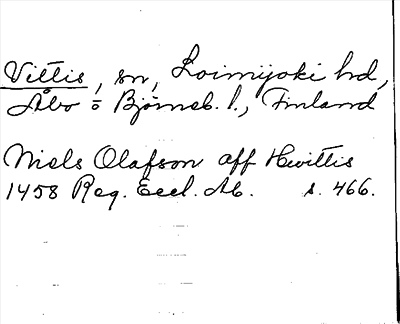 Vittis, sn, Loimijoki hd,
Åbo = Björneb. l., Finland
Niels Olafson aff Hwittis
1458 Reg. Eccl. Ab. s. 466.